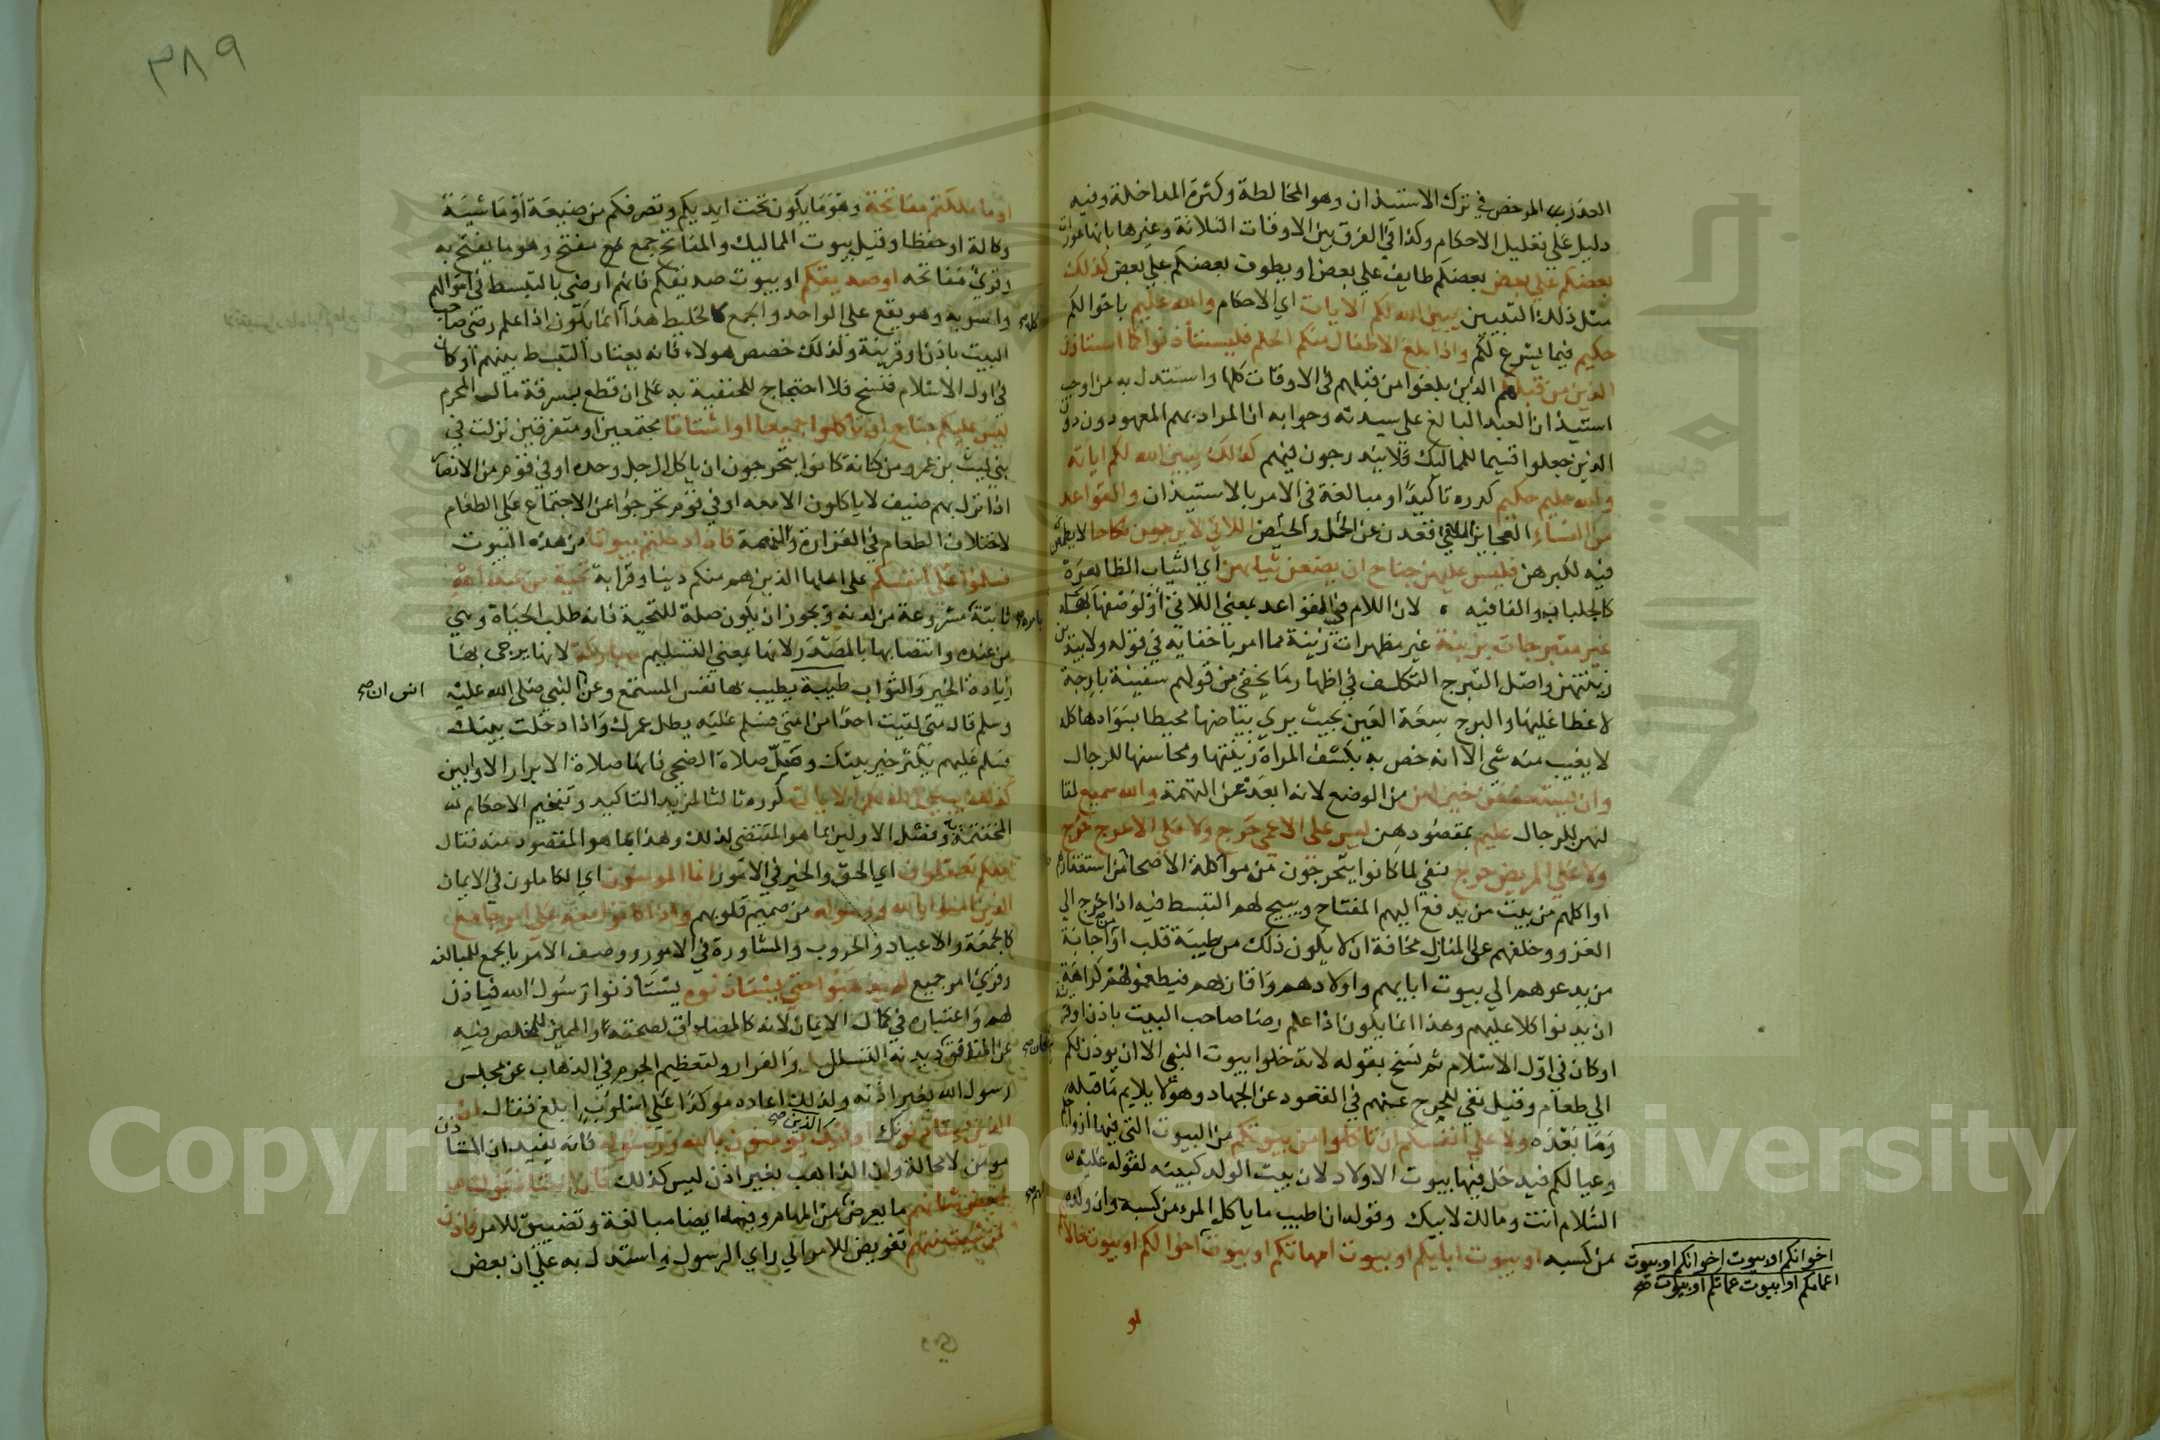 العذر المرخص في ترك الاستيذان وهو المخالطة وكثرة المداخلة وفيه
دليل على تعليل الاحكام وكذا في الفرق بين الاوقات الثلاثة وغيرها بانها عورات
بعضكم على بعض بعضكم طايف على بعض او يطوف بعضكم على بعض كذلك
مثل ذلك التبيين يبين الله لكم الايات اي الاحكام والله عليم باحوالكم
حكيم فيما يشرع لكم واذا بلغ الاطفال منكم الحلم فليستأذنوا كما استاذن
الذين من قبلهم الذين بلغوا من قبلهم في الاوقات كلها واستدل به من اوجب
استيذان العبد البالغ على سيدته وجوابه ان المراد بهم المعهودون دون
الذين جعلوا قسيما للمماليك فلا يندرجون فيهم كذلك يبين الله لكم اياته
والله عليم حكيم كرره تاكيدا ومبالغة في الامر بالاستيذان والقواعد
من النساء العجايز اللاتي قعدن عن الحمل والحيض اللاتي لا يرجون نكاحا لا يطمعن
فيه لكبرهن فليس عليهن جناح ان يضعن ثيابهن اي الثياب الظاهرة
كالجلباب والفا فيه لان اللام في القواعد بمعنى اللاتي او لوصفها بها
غير متبرجات بزينة غير مظهرات زينة مما امر باخفايه في قوله ولا يبدين
زينتهن واصل التبرج التكلف في اظهار ما يخفى من قولهم سفينة بارجة
لا غطا عليها والبرج سعة العين بحيث يرى بياضها محيطا بسوادها كله
لا يغيب منه شي الا انه خص به بكشف المراة زينتها ومحاسنها للرجال
وان يستعففن خير لهن من الوضع لانه ابعد عن التهمة والله سميع لمقا
لهن للرجال عليم بمقصودهن ليس على الاعمى حرج ولا على الاعرج حرج
ولا على المريض حرج نفي لما كانوا يتحرجون من مواكلة الاصحا من استقذارهم
او اكلهم من بيت من يدفع اليهم المفتاح ويبيح لهم التبسط فيه اذا خرج الى
الغزو وخلفهم على المنازل مخافة ان لا يكون ذلك من طيبة قلب او اجابة
من يدعوهم الى بيوت ابايهم واولادهم واقاربهم فيطعمونهم كراهة
ان يكونوا كلا عليهم وهذا انما يكون اذا علم رضا صاحب البيت باذن او قرينة
او كان في اول الاسلام ثم نسخ بقوله لا تدخلوا بيوت النبي الا ان يوذن لكم
الى طعام وقيل نفي للحرج عنهم في القعود عن الجهاد وهو لا يلايم ما قبله
وما بعده ولا على انفسكم ان تاكلوا من بيوتكم من البيوت التي فيها ازواجكم
وعيالكم فيدخل فيها بيوت الاولاد لان بيت الولد كبيته لقوله عليه
السلام انت ومالك لابيك وقوله ان اطيب ما ياكل المرء من كسبه وان ولده
من كسبه او بيوت ابايكم او بيوت امهاتكم او بيوت اخوالكم او بيوت خالاتكم
اخوانكم او بيوت اخواتكم او بيوت
اعمامكم او بيوت عماتكم او بيوت صح
٣٨٩
او ما ملكتم مفاتحه وهو ما يكون تحت ايديكم وتصرفكم من ضيعة او ماشية
وكالة او حفظا وقيل بيوت المماليك والمفاتح جمع مفتح وهو ما يفتح به
وقرئ مفاتحه او صديقكم او بيوت صديقكم فانهم ارضى بالتبسط في اموالهم
واسر به وهو يقع على الواحد والجمع كالخليط هذا كله انما يكون اذا علم رضى صاحب
البيت باذن او قرينة ولذلك خصص هولاء فانه يعتاد التبسط بينهم او كان
في اول الاسلام فنسخ فلا احتجاج للحنفية به على ان لا قطع بسرقة مال المحرم
ليس عليكم جناح ان تاكلوا جميعا او اشتاتا مجتمعين او متفرقين نزلت في
بني ليث بن عمرو من كنانة كانوا يتحرجون ان ياكل الرجل وحده او في قوم من الانصار
اذا نزل بهم ضيف لا ياكلون الا معه او في قوم تحرجوا عن الاجتماع على الطعام
لاختلاف الطعام في القزارة والنهمة فاذا دخلتم بيوتا من هذه البيوت
فسلموا على انفسكم على اهلها الذين هم منكم دينا وقرابة تحية من عند الله
ثابتة بامره مشروعة من لدنه ويجوز ان يكون صلة للتحية فانه طلب الحياة وهي
من عنده وانتصابها بالمصدر لانها بمعنى التسليم مباركة لانها يرجى بها
زيادة الخير والثواب طيبة يطيب بها نفس المستمع وعن انس ان النبي صلى الله عليه
وسلم قال متى لقيت احدا من امتي فسلم عليه يطل عمرك واذا دخلت بيتك
فسلم عليهم يكثر خير بيتك وصل صلاة الضحى فانها صلاة الابرار الاوابين
كذلك يبين الله لكم الايات كرره ثالثا لمزيد التاكيد وتفخيم الاحكام
المختتمة به وفصل الاولين بما هو المقتضي لذلك وهذا بما هو المقصود منه فقال
لعلكم تعقلون اي الحق والخير في الامور انما المومنون اي الكاملون في الايمان
الذين امنوا بالله ورسوله من صميم قلوبهم واذا كانوا معه على امر جامع
كالجمعة والاعياد والحروب والمشاورة في الامور ووصف الامر بالجمع للمبالغة
وقرئ امر جميع لم يذهبوا حتى يستاذنوه يستاذنوا رسول الله فياذن
لهم واعتباره في كمال الايمان لانه كالمصداق لصحته والمميز للمخلص فيه
عن المنافق فان ديدنه التسلل والفرار ولتعظيم الجرم في الذهاب عن مجلس
رسول الله بغير اذنه ولذلك اعاده موكدا على اسلوب ابلغ فقال ان
الذين يستاذنونك اوليك الذين يومنون بالله ورسوله فانه يفيد ان المستاذن
مومن لا محالة وان الذاهب بغير اذن ليس كذلك فاذا استاذنوك
لبعض شانهم ما يعرض لهم من المهام وفيه ايضا مبالغة وتضييق للامر فاذن
لمن شيت منهم تفويض للامر الى راي الرسول واستدل به على ان بعض
Copyright © King Saud University